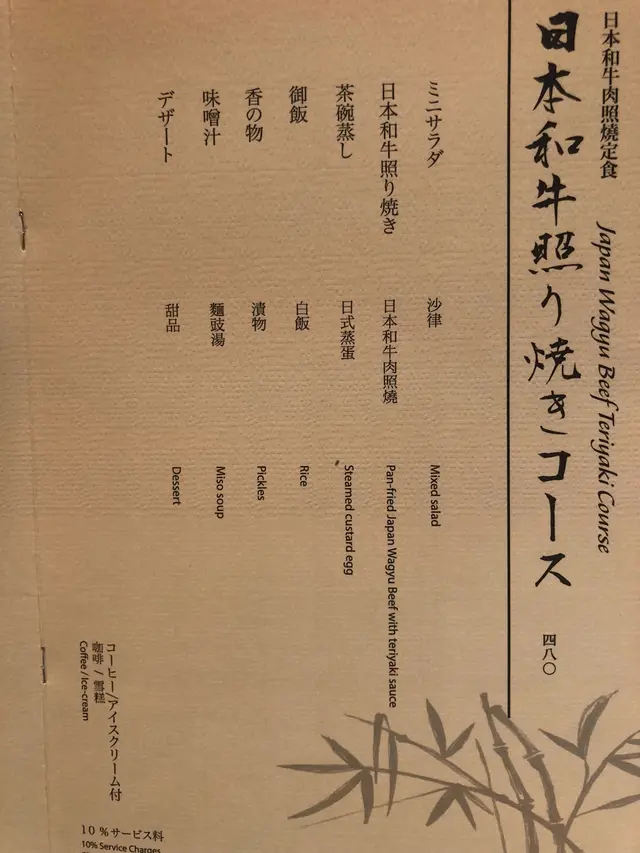 日本和牛肉照燒定食
Japan Wagyu Beef Teriyaki Course
日本和牛照り焼きコース
四八〇
ミニサラダ
沙律
Mixed salad
日本和牛照り焼き
日本和牛肉照燒
Pan-fried Japan Wagyu Beef with teriyaki sauce
茶碗蒸し
日式蒸蛋
Steamed custard egg
御飯
白飯
Rice
香の物
漬物
Pickles
味噌汁
麵豉湯
Miso soup
デザート
甜品
Dessert
コーヒー/アイスクリーム付
咖啡 / 雪糕
Coffee / Ice-cream
10 %サービス料
10% Service Charges